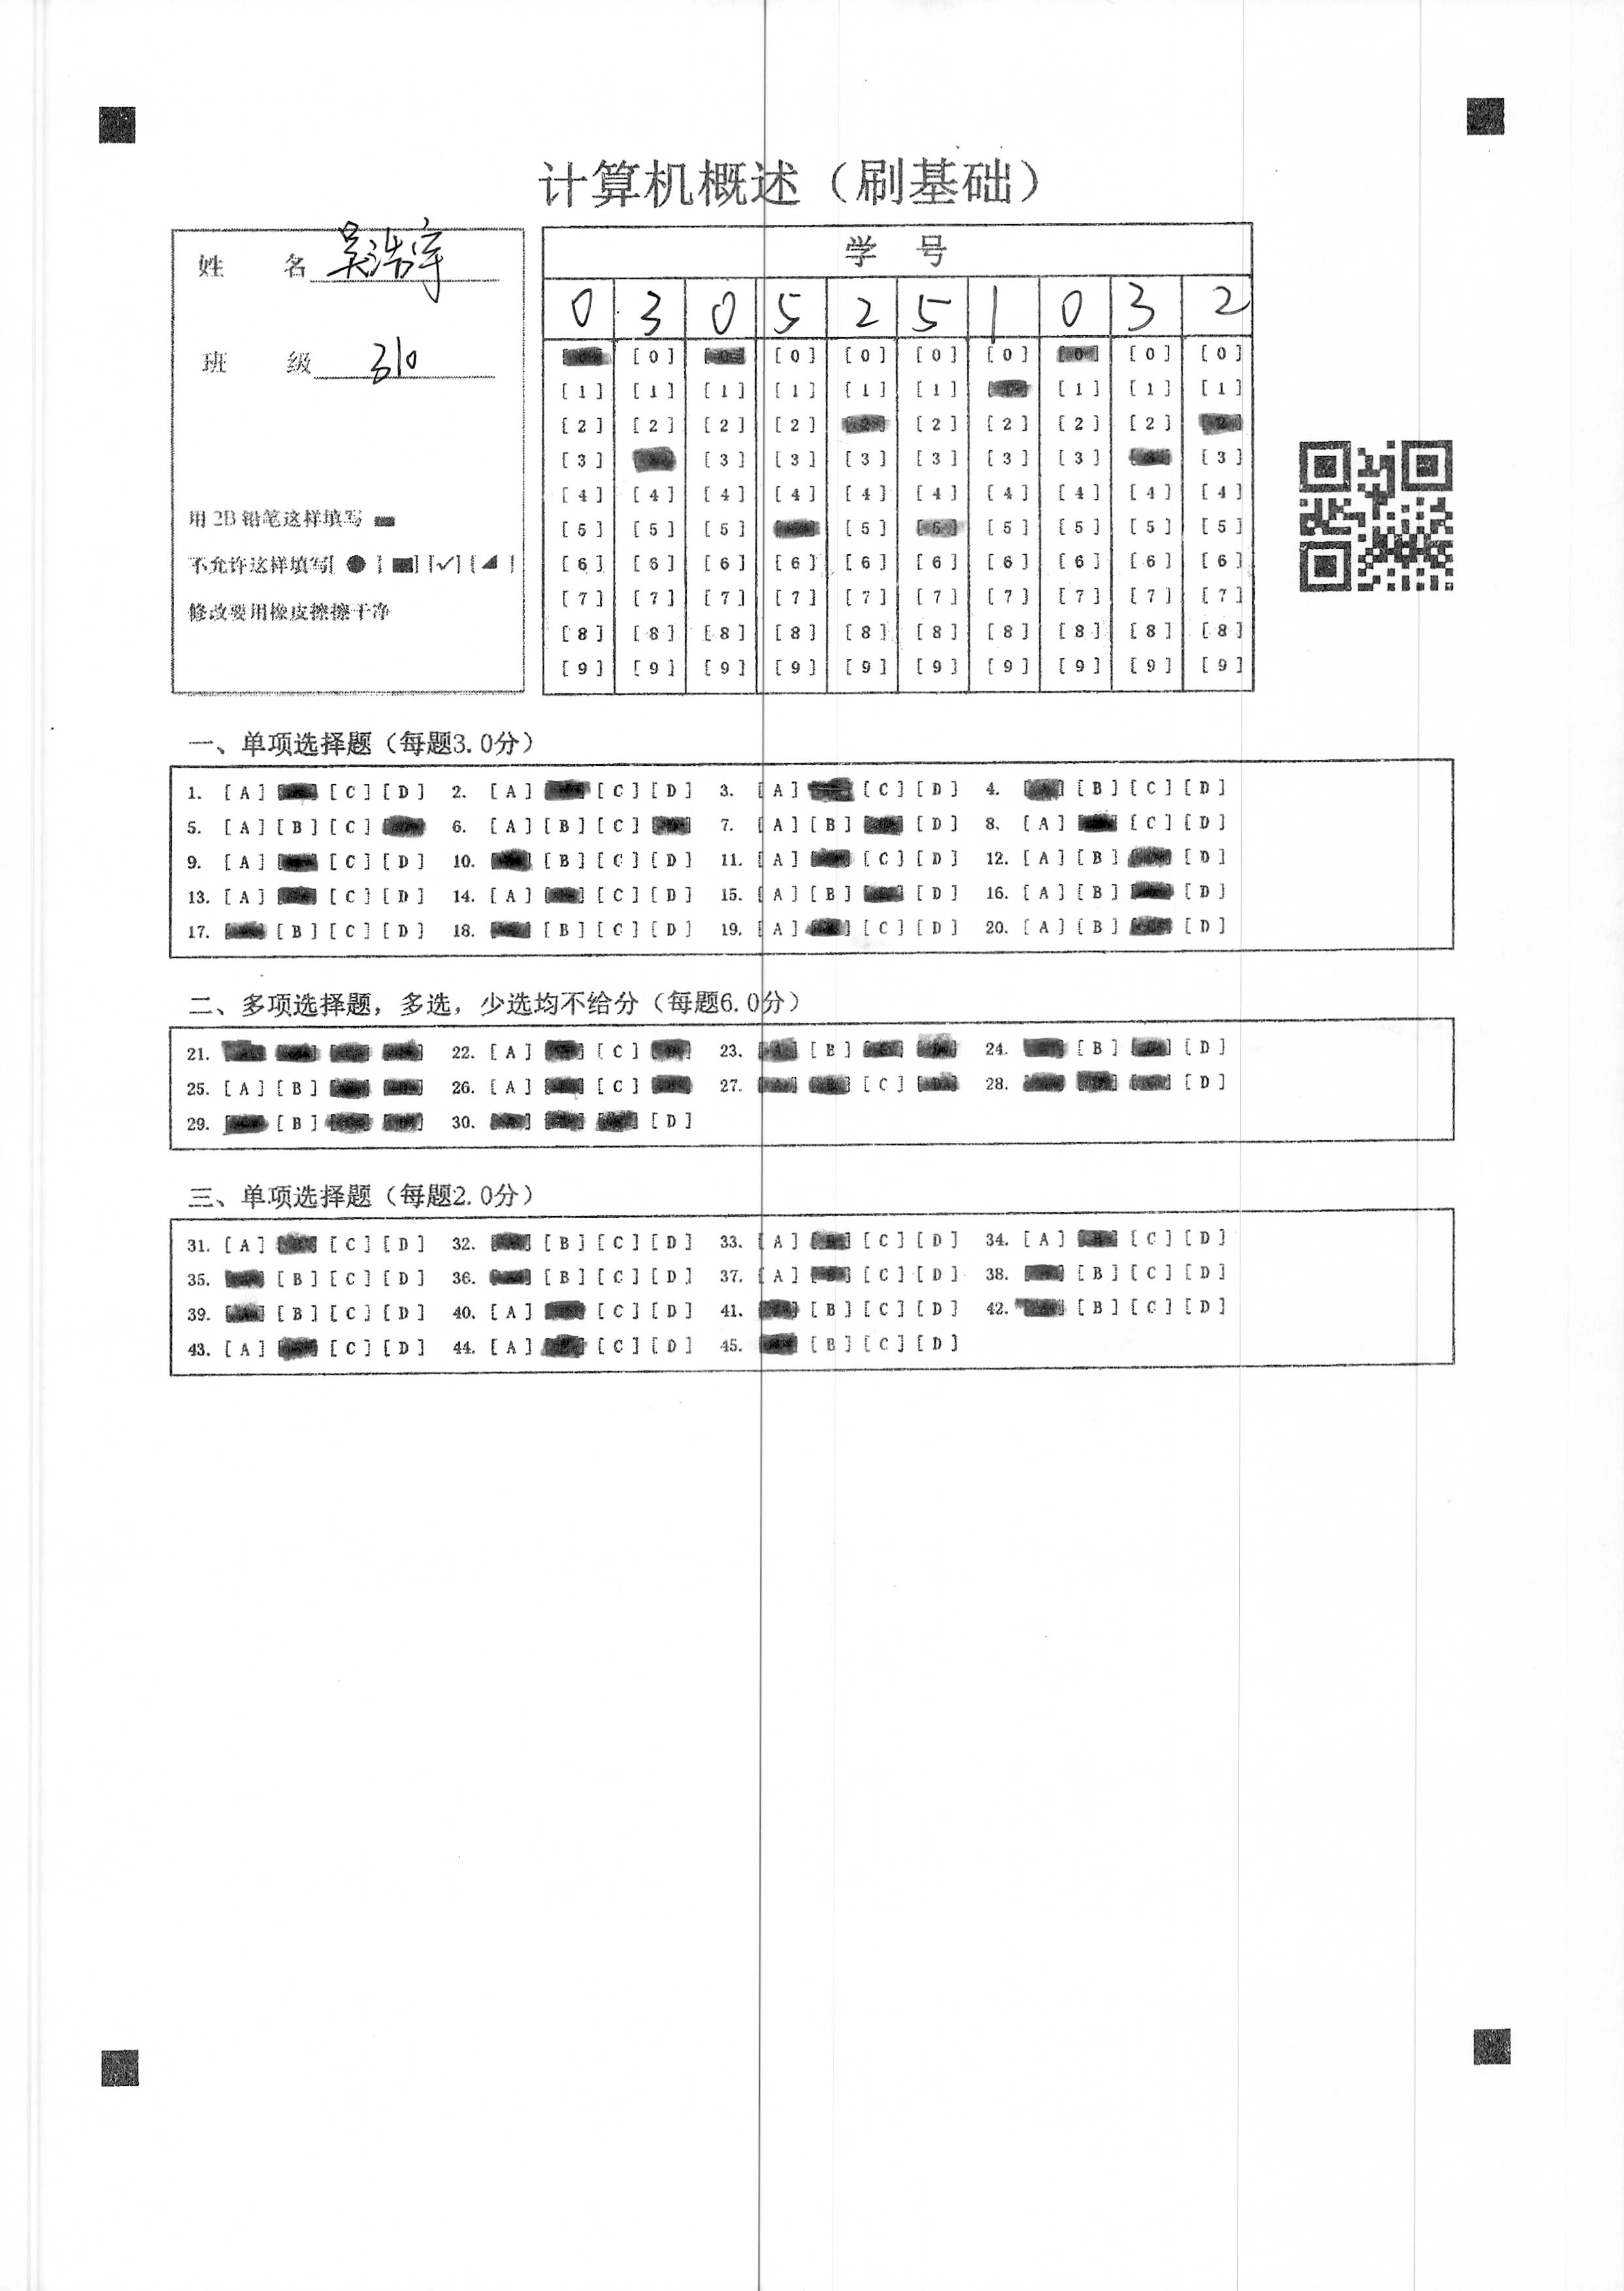 计算机概述（刷基础）
姓 名 吴浩宇
班 级 310
用2B铅笔这样填写
不允许这样填写[ ● ] [■] [✓] [◢ ]
修改要用橡皮擦擦干净
学 号
0 3 0 5 2 5 1 0 3 2
[0] [0] [0] [0] [0] [0]
[1] [1] [1] [1] [1] [1] [1] [1] [1]
[2] [2] [2] [2] [2] [2] [2] [2]
[3] [3] [3] [3] [3] [3] [3] [3]
[4] [4] [4] [4] [4] [4] [4] [4] [4] [4]
[5] [5] [5] [5] [5] [5] [5] [5] [5]
[6] [6] [6] [6] [6] [6] [6] [6] [6] [6]
[7] [7] [7] [7] [7] [7] [7] [7] [7] [7]
[8] [8] [8] [8] [8] [8] [8] [8] [8] [8]
[9] [9] [9] [9] [9] [9] [9] [9] [9] [9]
一、单项选择题（每题3.0分）
1. [A] [C] [D] 2. [A] [C] [D] 3. [A] [C] [D] 4. [B] [C] [D]
5. [A] [B] [C] 6. [A] [B] [C] 7. [A] [B] [D] 8. [A] [C] [D]
9. [A] [C] [D] 10. [B] [C] [D] 11. [A] [C] [D] 12. [A] [B] [D]
13. [A] [C] [D] 14. [A] [C] [D] 15. [A] [B] [D] 16. [A] [B] [D]
17. [B] [C] [D] 18. [B] [C] [D] 19. [A] [C] [D] 20. [A] [B] [D]
二、多项选择题，多选，少选均不给分（每题6.0分）
21. 22. [A] [C] 23. [B] 24. [B] [D]
25. [A] [B] 26. [A] [C] 27. [C] 28. [D]
29. [B] 30. [D]
三、单项选择题（每题2.0分）
31. [A] [C] [D] 32. [B] [C] [D] 33. [A] [C] [D] 34. [A] [C] [D]
35. [B] [C] [D] 36. [B] [C] [D] 37. [A] [C] [D] 38. [B] [C] [D]
39. [B] [C] [D] 40. [A] [C] [D] 41. [B] [C] [D] 42. [B] [C] [D]
43. [A] [C] [D] 44. [A] [C] [D] 45. [B] [C] [D]